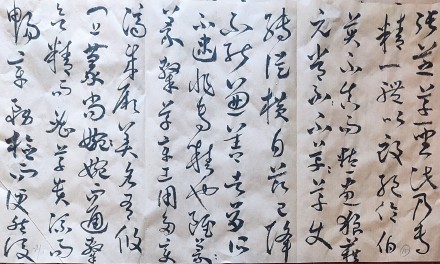 張芝草聖此乃專
精一體以致絕倫伯
英不真而點畫狼藉
元常不草使
轉縱橫自茲已降
不能兼善者有所
不逮非專精也雖篆
隸草章工用多變
濟成厥美各有攸
宜篆尚婉而通隸
欲精而密草貴流而
暢章務檢而便然後